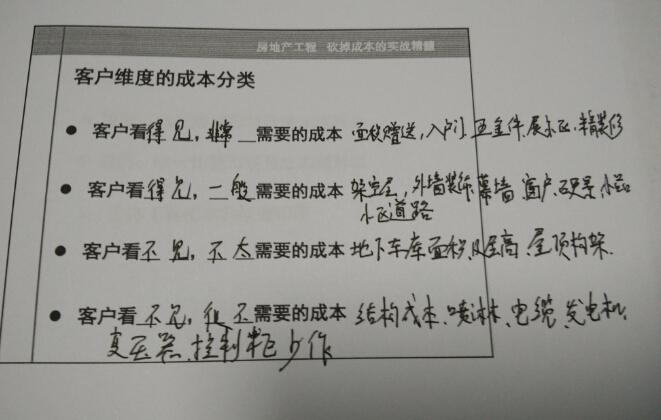 房地产工程 砍掉成本的实战精髓
客户维度的成本分类
● 客户看得见,非常需要的成本 面积赠送,入户门,五金件,展示区,精装修
● 客户看得见,一般需要的成本 架空层,外墙装饰,幕墙,窗户,硬景,小品
小区道路
● 客户看不见,不太需要的成本 地下车库面积及层高,屋顶构架.
● 客户看不见,但不需要的成本 结构成本,喷淋,电缆,发电机,
变压器,控制 少作